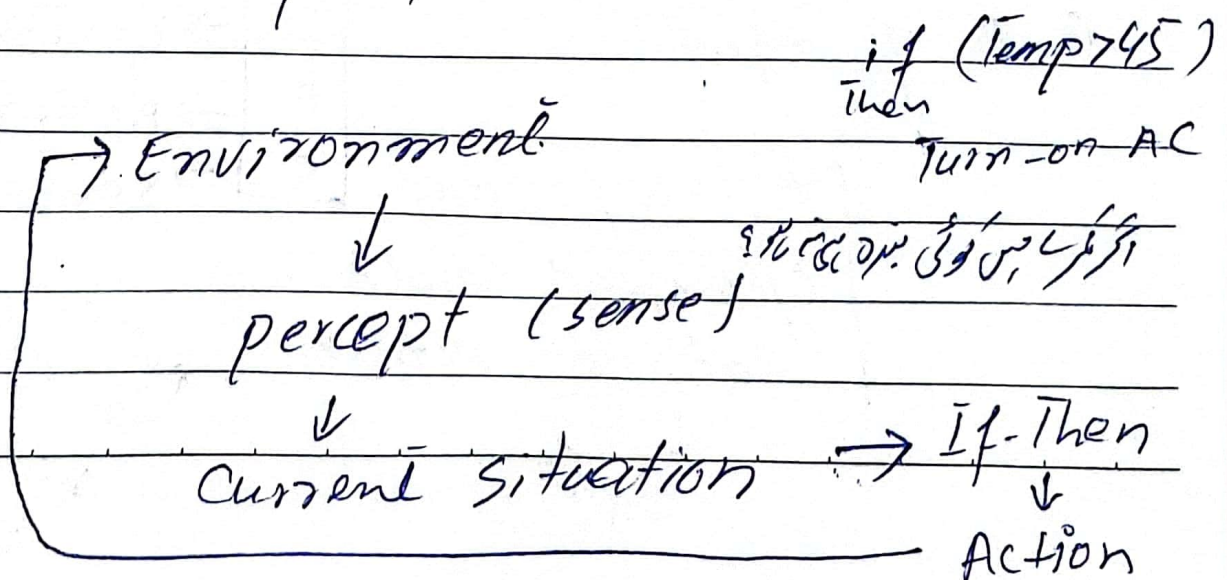 if (Temp>45)
Then
Turn-on AC
→ Environment
↓
percept (sense)
↓
Current situation → If-Then
↓
Action